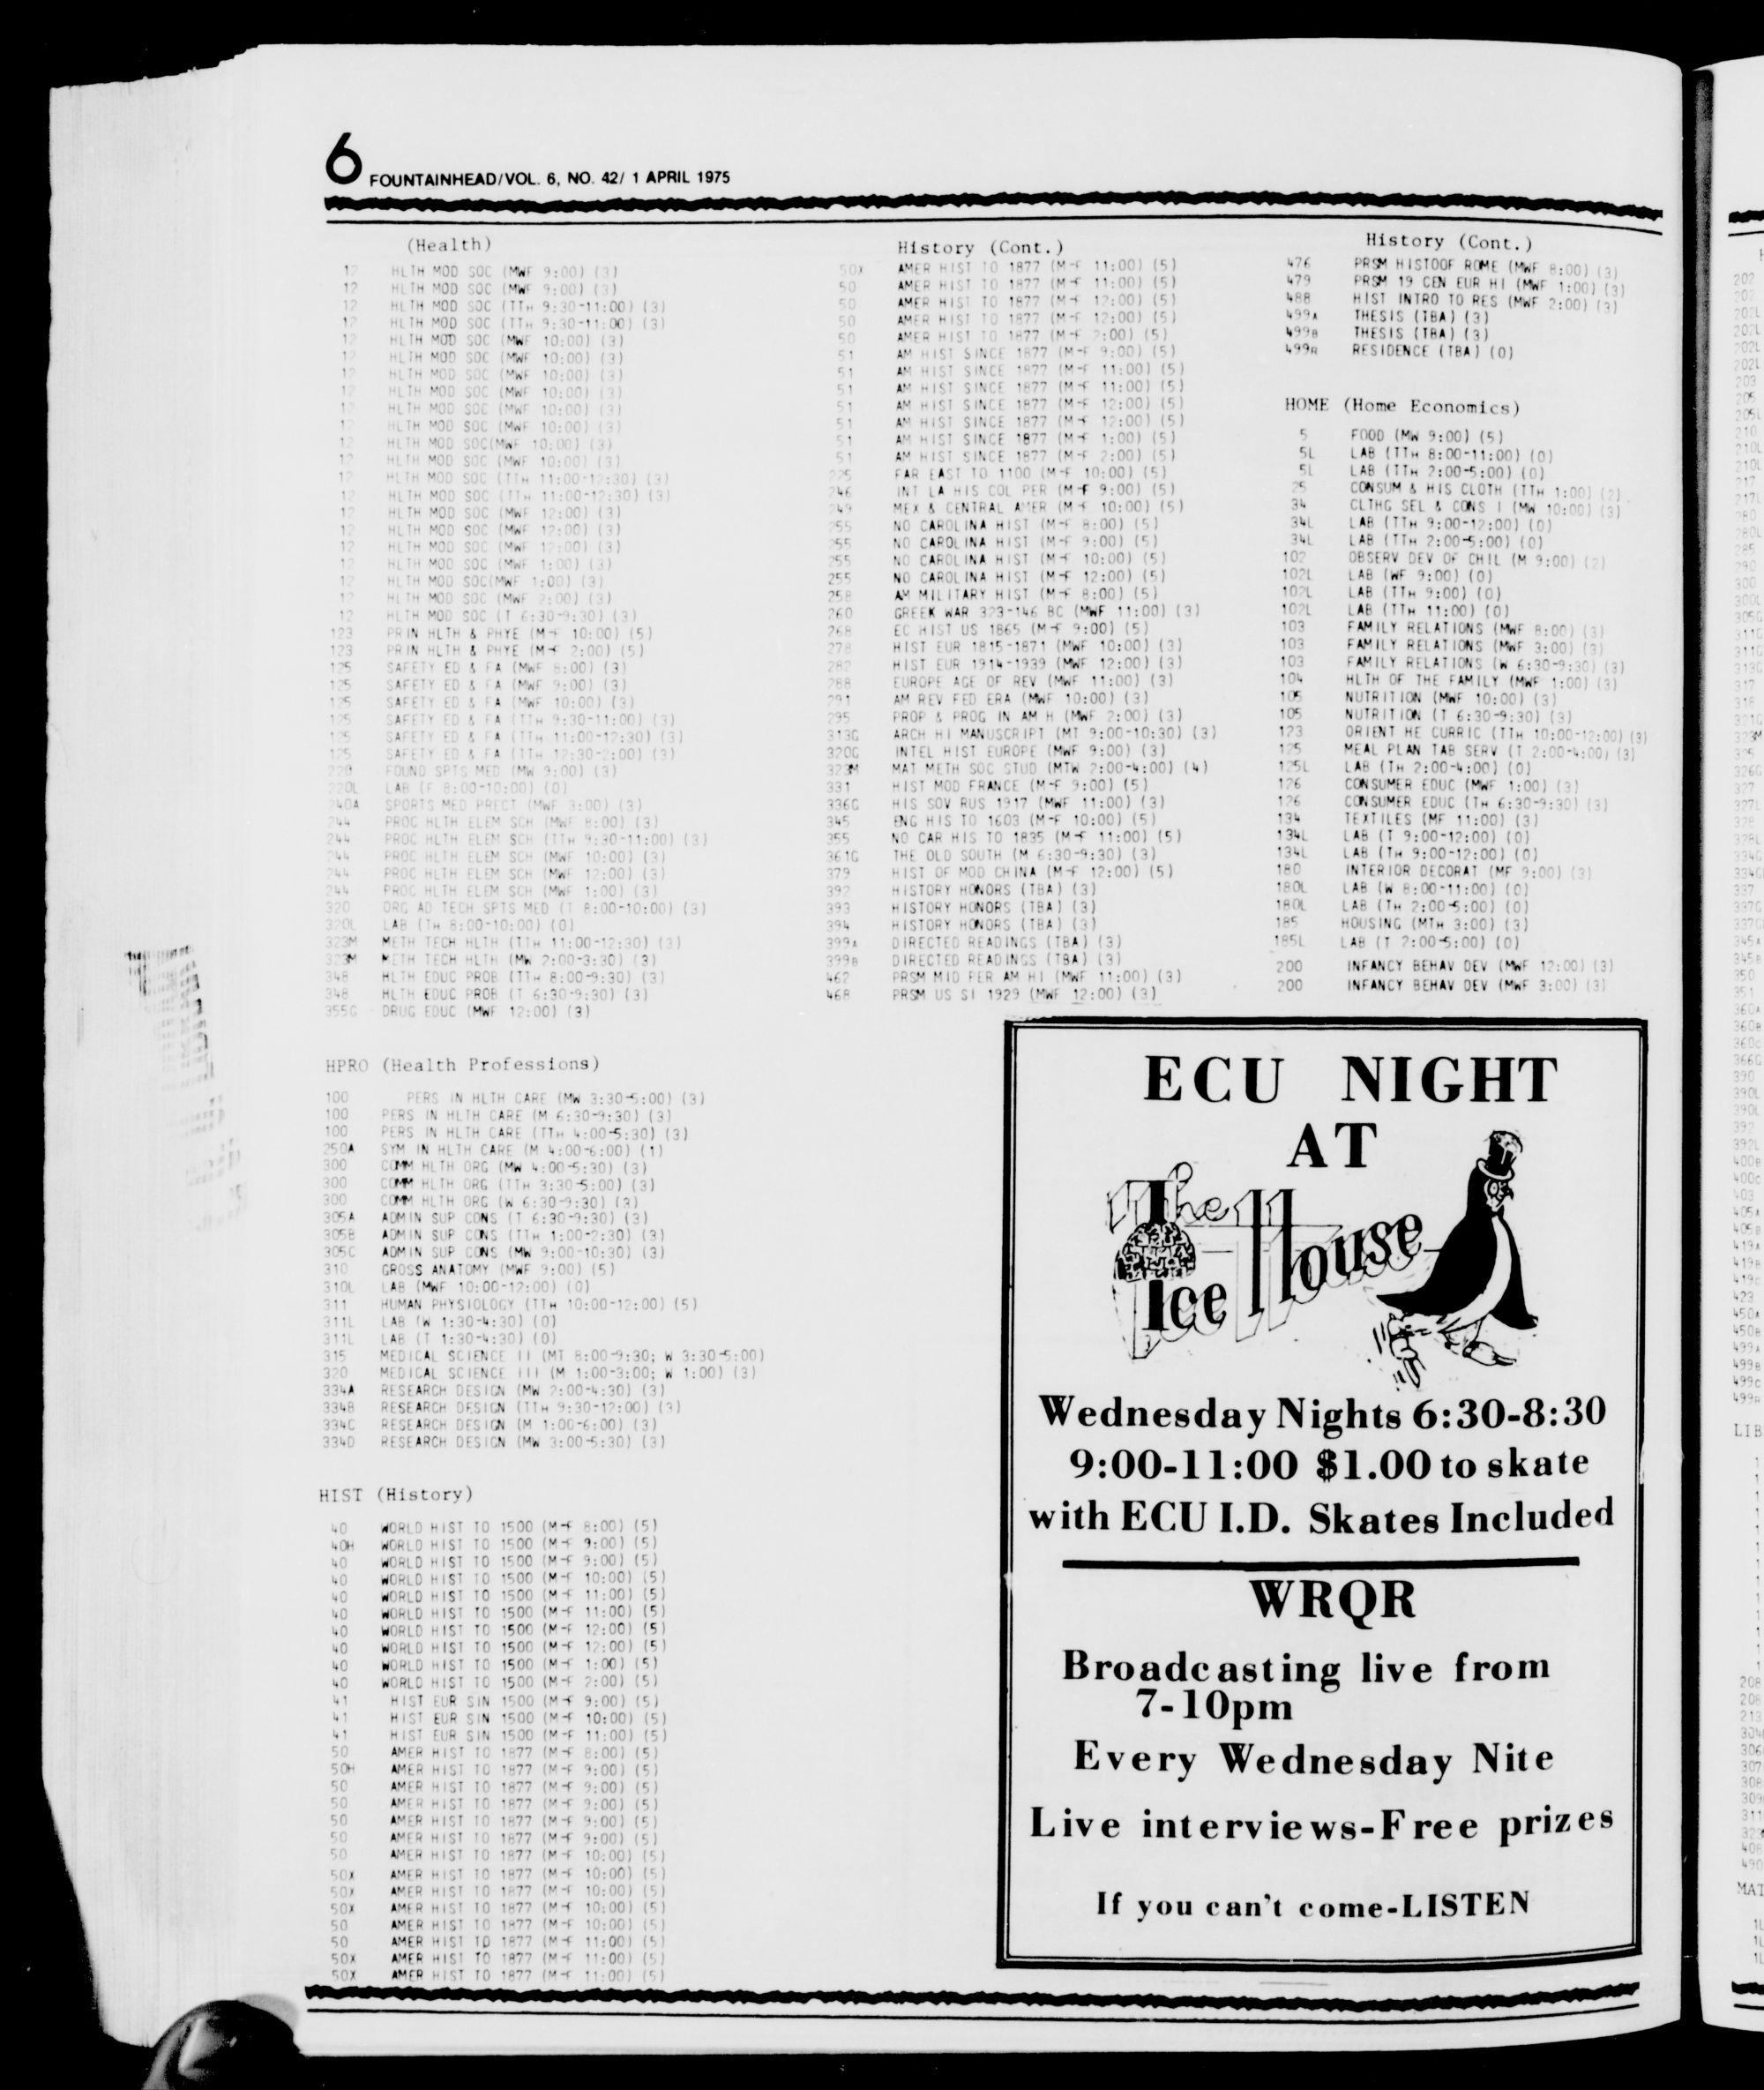 6 FOUNTAINHEAD/VOL. 6, NO. 42/ 1 APRIL 1975
(Health)
12 HLTH MOD SOC (MWF 9:00) (3)
12 HLTH MOD SOC (MWF 9:00) (3)
12 HLTH MOD SOC (TTH 9:30-11:00) (3)
12 HLTH MOD SOC (TTH 9:30-11:00) (3)
12 HLTH MOD SOC (MWF 10:00) (3)
12 HLTH MOD SOC (MWF 10:00) (3)
12 HLTH MOD SOC (MWF 10:00) (3)
12 HLTH MOD SOC (MWF 10:00) (3)
12 HLTH MOD SOC (MWF 10:00) (3)
12 HLTH MOD SOC (MWF 10:00) (3)
12 HLTH MOD SOC(MWF 10:00) (3)
12 HLTH MOD SOC (MWF 10:00) (3)
12 HLTH MOD SOC (TTH 11:00-12:30) (3)
12 HLTH MOD SOC (TTH 11:00-12:30) (3)
12 HLTH MOD SOC (MWF 12:00) (3)
12 HLTH MOD SOC (MWF 12:00) (3)
12 HLTH MOD SOC (MWF 12:00) (3)
12 HLTH MOD SOC (MWF 1:00) (3)
12 HLTH MOD SOC(MWF 1:00) (3)
12 HLTH MOD SOC (MWF 2:00) (3)
12 HLTH MOD SOC (T 6:30-9:30) (3)
123 PRIN HLTH & PHYE (M-F 10:00) (5)
123 PRIN HLTH & PHYE (M-F 2:00) (5)
125 SAFETY ED & FA (MWF 8:00) (3)
125 SAFETY ED & FA (MWF 9:00) (3)
125 SAFETY ED & FA (MWF 10:00) (3)
125 SAFETY ED & FA (TTH 9:30-11:00) (3)
125 SAFETY ED & FA (TTH 11:00-12:30) (3)
125 SAFETY ED & FA (TTH 12:30-2:00) (3)
220 FOUND SPTS MED (MW 9:00) (3)
220L LAB (F 8:00-10:00) (0)
240A SPORTS MED PRECT (MWF 3:00) (3)
244 PROC HLTH ELEM SCH (MWF 8:00) (3)
244 PROC HLTH ELEM SCH (TTH 9:30-11:00) (3)
244 PROC HLTH ELEM SCH (MWF 10:00) (3)
244 PROC HLTH ELEM SCH (MWF 12:00) (3)
244 PROC HLTH ELEM SCH (MWF 1:00) (3)
320 ORG AD TECH SPTS MED (T 8:00-10:00) (3)
320L LAB (TH 8:00-10:00) (0)
323M METH TECH HLTH (TTH 11:00-12:30) (3)
323M METH TECH HLTH (MW 2:00-3:30) (3)
348 HLTH EDUC PROB (TTH 8:00-9:30) (3)
348 HLTH EDUC PROB (T 6:30-9:30) (3)
355G DRUG EDUC (MWF 12:00) (3)
HPRO (Health Professions)
100 PERS IN HLTH CARE (MW 3:30-5:00) (3)
100 PERS IN HLTH CARE (M 6:30-9:30) (3)
100 PERS IN HLTH CARE (TTH 4:00-5:30) (3)
250A SYM IN HLTH CARE (M 4:00-6:00) (1)
300 COMM HLTH ORG (MW 4:00-5:30) (3)
300 COMM HLTH ORG (TTH 3:30-5:00) (3)
300 COMM HLTH ORG (W 6:30-9:30) (3)
305A ADMIN SUP CONS (T 6:30-9:30) (3)
305B ADMIN SUP CONS (TTH 1:00-2:30) (3)
305C ADMIN SUP CONS (MW 9:00-10:30) (3)
310 GROSS ANATOMY (MWF 9:00) (5)
310L LAB (MWF 10:00-12:00) (0)
311 HUMAN PHYSIOLOGY (TTH 10:00-12:00) (5)
311L LAB (W 1:30-4:30) (0)
311L LAB (T 1:30-4:30) (0)
315 MEDICAL SCIENCE II (MT 8:00-9:30; W 3:30-5:00)
320 MEDICAL SCIENCE III (M 1:00-3:00; W 1:00) (3)
334A RESEARCH DESIGN (MW 2:00-4:30) (3)
334B RESEARCH DESIGN (TTH 9:30-12:00) (3)
334C RESEARCH DESIGN (M 1:00-6:00) (3)
334D RESEARCH DESIGN (MW 3:00-5:30) (3)
HIST (History)
40 WORLD HIST TO 1500 (M-F 8:00) (5)
40H WORLD HIST TO 1500 (M-F 9:00) (5)
40 WORLD HIST TO 1500 (M-F 9:00) (5)
40 WORLD HIST TO 1500 (M-F 10:00) (5)
40 WORLD HIST TO 1500 (M-F 11:00) (5)
40 WORLD HIST TO 1500 (M-F 11:00) (5)
40 WORLD HIST TO 1500 (M-F 12:00) (5)
40 WORLD HIST TO 1500 (M-F 12:00) (5)
40 WORLD HIST TO 1500 (M-F 1:00) (5)
40 WORLD HIST TO 1500 (M-F 2:00) (5)
41 HIST EUR SIN 1500 (M-F 9:00) (5)
41 HIST EUR SIN 1500 (M-F 10:00) (5)
41 HIST EUR SIN 1500 (M-F 11:00) (5)
50 AMER HIST TO 1877 (M-F 8:00) (5)
50H AMER HIST TO 1877 (M-F 9:00) (5)
50 AMER HIST TO 1877 (M-F 9:00) (5)
50 AMER HIST TO 1877 (M-F 9:00) (5)
50 AMER HIST TO 1877 (M-F 9:00) (5)
50 AMER HIST TO 1877 (M-F 9:00) (5)
50 AMER HIST TO 1877 (M-F 10:00) (5)
50X AMER HIST TO 1877 (M-F 10:00) (5)
50X AMER HIST TO 1877 (M-F 10:00) (5)
50X AMER HIST TO 1877 (M-F 10:00) (5)
50 AMER HIST TO 1877 (M-F 10:00) (5)
50 AMER HIST TO 1877 (M-F 11:00) (5)
50X AMER HIST TO 1877 (M-F 11:00) (5)
50X AMER HIST TO 1877 (M-F 11:00) (5)
History (Cont.)
50X AMER HIST TO 1877 (M-F 11:00) (5)
50 AMER HIST TO 1877 (M-F 11:00) (5)
50 AMER HIST TO 1877 (M-F 12:00) (5)
50 AMER HIST TO 1877 (M-F 12:00) (5)
50 AMER HIST TO 1877 (M-F 2:00) (5)
51 AM HIST SINCE 1877 (M-F 9:00) (5)
51 AM HIST SINCE 1877 (M-F 11:00) (5)
51 AM HIST SINCE 1877 (M-F 11:00) (5)
51 AM HIST SINCE 1877 (M-F 12:00) (5)
51 AM HIST SINCE 1877 (M-F 12:00) (5)
51 AM HIST SINCE 1877 (M-F 1:00) (5)
51 AM HIST SINCE 1877 (M-F 2:00) (5)
225 FAR EAST TO 1100 (M-F 10:00) (5)
246 INT LA HIS COL PER (M-F 9:00) (5)
249 MEX & CENTRAL AMER (M-F 10:00) (5)
255 NO CAROLINA HIST (M-F 8:00) (5)
255 NO CAROLINA HIST (M-F 9:00) (5)
255 NO CAROLINA HIST (M-F 10:00) (5)
255 NO CAROLINA HIST (M-F 12:00) (5)
258 AM MILITARY HIST (M-F 8:00) (5)
260 GREEK WAR 323-146 BC (MWF 11:00) (3)
268 EC HIST US 1865 (M-F 9:00) (5)
278 HIST EUR 1815-1871 (MWF 10:00) (3)
282 HIST EUR 1914-1939 (MWF 12:00) (3)
288 EUROPE AGE OF REV (MWF 11:00) (3)
291 AM REV FED ERA (MWF 10:00) (3)
295 PROP & PROG IN AM H (MWF 2:00) (3)
313G ARCH HI MANUSCRIPT (MT 9:00-10:30) (3)
320G INTEL HIST EUROPE (MWF 9:00) (3)
323M MAT METH SOC STUD (MTW 2:00-4:00) (4)
331 HIST MOD FRANCE (M-F 9:00) (5)
336G HIS SOV RUS 1917 (MWF 11:00) (3)
345 ENG HIS TO 1603 (M-F 10:00) (5)
355 NO CAR HIS TO 1835 (M-F 11:00) (5)
361G THE OLD SOUTH (M 6:30-9:30) (3)
379 HIST OF MOD CHINA (M-F 12:00) (5)
392 HISTORY HONORS (TBA) (3)
393 HISTORY HONORS (TBA) (3)
394 HISTORY HONORS (TBA) (3)
399A DIRECTED READINGS (TBA) (3)
399B DIRECTED READINGS (TBA) (3)
462 PRSM MID PER AM HI (MWF 11:00) (3)
468 PRSM US SI 1929 (MWF 12:00) (3)
History (Cont.)
476 PRSM HISTOOF ROME (MWF 8:00) (3)
479 PRSM 19 CEN EUR HI (MWF 1:00) (3)
488 HIST INTRO TO RES (MWF 2:00) (3)
499A THESIS (TBA) (3)
499B THESIS (TBA) (3)
499R RESIDENCE (TBA) (0)
HOME (Home Economics)
5 FOOD (MW 9:00) (5)
5L LAB (TTH 8:00-11:00) (0)
5L LAB (TTH 2:00-5:00) (0)
25 CONSUM & HIS CLOTH (TTH 1:00) (2)
34 CLTHG SEL & CONS I (MW 10:00) (3)
34L LAB (TTH 9:00-12:00) (0)
34L LAB (TTH 2:00-5:00) (0)
102 OBSERV DEV OF CHIL (M 9:00) (2)
102L LAB (WF 9:00) (0)
102L LAB (TTH 9:00) (0)
102L LAB (TTH 11:00) (0)
103 FAMILY RELATIONS (MWF 8:00) (3)
103 FAMILY RELATIONS (MWF 3:00) (3)
103 FAMILY RELATIONS (W 6:30-9:30) (3)
104 HLTH OF THE FAMILY (MWF 1:00) (3)
105 NUTRITION (MWF 10:00) (3)
105 NUTRITION (T 6:30-9:30) (3)
123 ORIENT HE CURRIC (TTH 10:00-12:00) (3)
125 MEAL PLAN TAB SERV (T 2:00-4:00) (3)
125L LAB (TH 2:00-4:00) (0)
126 CONSUMER EDUC (MWF 1:00) (3)
126 CONSUMER EDUC (TH 6:30-9:30) (3)
134 TEXTILES (MF 11:00) (3)
134L LAB (T 9:00-12:00) (0)
134L LAB (TH 9:00-12:00) (0)
180 INTERIOR DECORAT (MF 9:00) (3)
180L LAB (W 8:00-11:00) (0)
180L LAB (TH 2:00-5:00) (0)
185 HOUSING (MTH 3:00) (3)
185L LAB (T 2:00-5:00) (0)
200 INFANCY BEHAV DEV (MWF 12:00) (3)
200 INFANCY BEHAV DEV (MWF 3:00) (3)
ECU NIGHT
AT
The
Ice House
Wednesday Nights 6:30-8:30
9:00-11:00 $1.00 to skate
with ECU I.D. Skates Included
WRQR
Broadcasting live from
7-10pm
Every Wednesday Nite
Live interviews-Free prizes
If you can't come-LISTEN